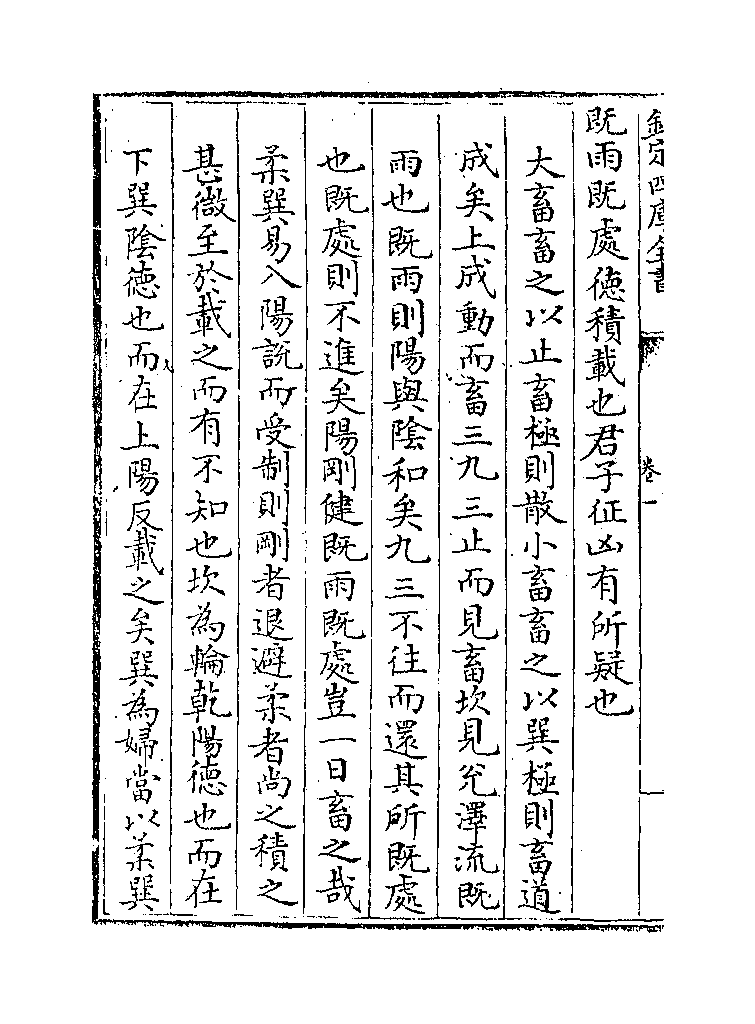 欽定四庫全書
卷一
既雨既處德積載也君子征凶有所疑也
大畜畜之以止畜極則散小畜畜之以巽極則畜道
成矣上成動而畜三九三止而見畜坎見兊澤流既
雨也既雨則陽與陰和矣九三不往而還其所既處
也既處則不進矣陽剛健既雨既處豈一日畜之哉
柔巽易入陽說而受制則剛者退避柔者尚之積之
甚微至於載之而有不知也坎為輪乾陽德也而在
下巽陰德也而在上陽反載之矣巽為婦當以柔巽